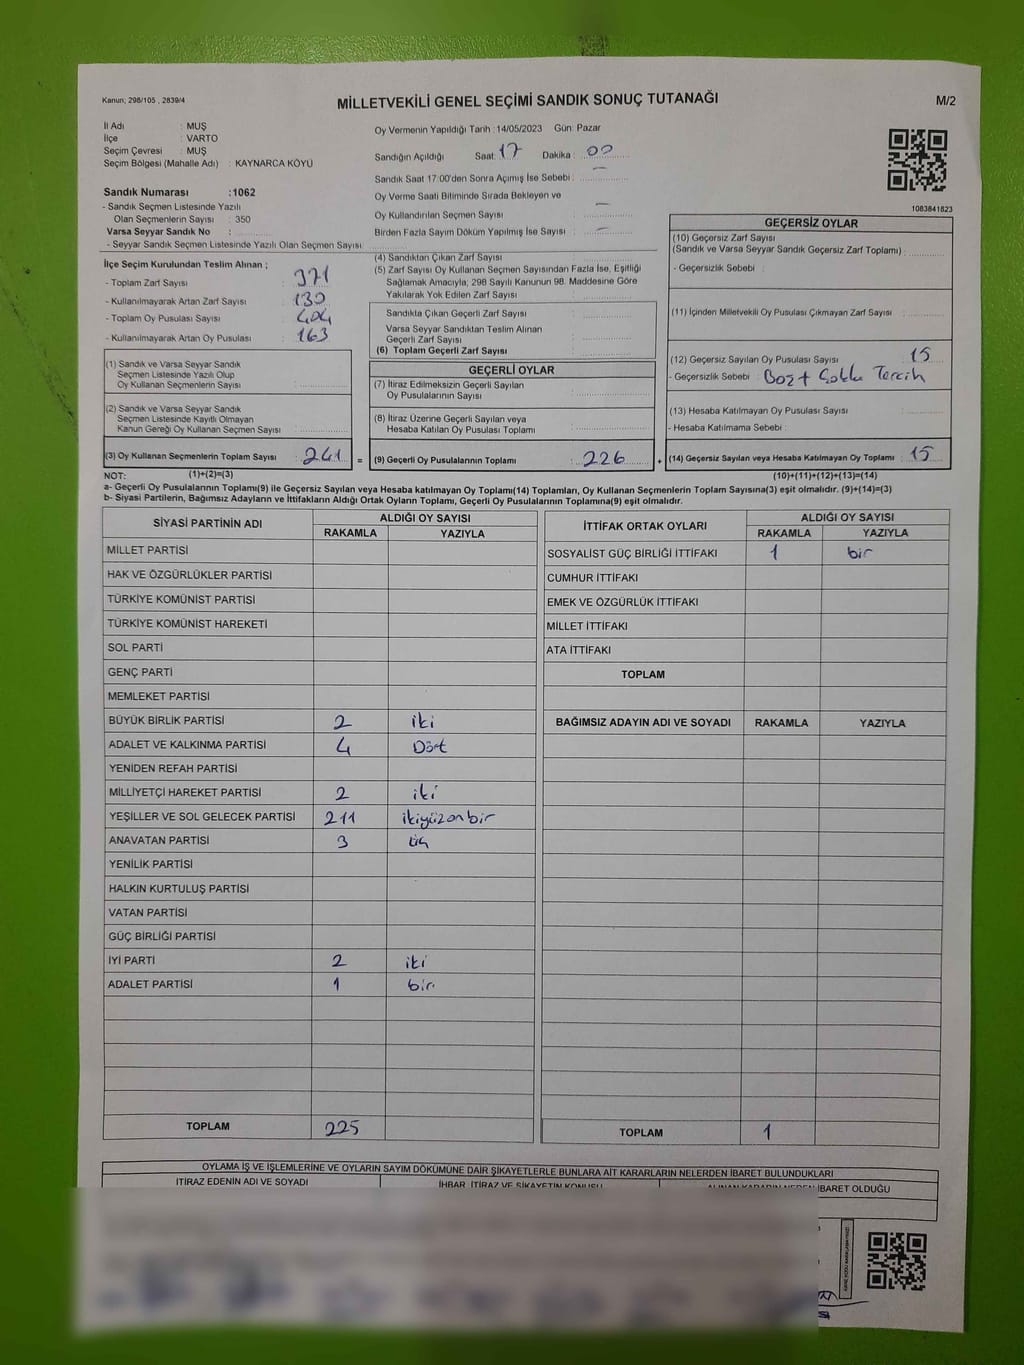 Kanun; 298/105 , 2839/4
MİLLETVEKİLİ GENEL SEÇİMİ SANDIK SONUÇ TUTANAĞI
M/2
İl Adı : MUŞ
İlçe : VARTO
Seçim Çevresi : MUŞ
Seçim Bölgesi (Mahalle Adı) : KAYNARCA KÖYÜ
Sandık Numarası :1062
- Sandık Seçmen Listesinde Yazılı
Olan Seçmenlerin Sayısı : 350
Varsa Seyyar Sandık No :
- Seyyar Sandık Seçmen Listesinde Yazılı Olan Seçmen Sayısı:
Oy Vermenin Yapıldığı Tarih :14/05/2023 Gün: Pazar
Sandığın Açıldığı Saat: 17 Dakika : 00
Sandık Saat 17:00'den Sonra Açımış İse Sebebi : —
Oy Verme Saati Bitiminde Sırada Bekleyen ve
Oy Kullandırılan Seçmen Sayısı : —
Birden Fazla Sayım Döküm Yapılmış İse Sayısı : —
1083841823
İlçe Seçim Kurulundan Teslim Alınan ;
- Toplam Zarf Sayısı : 371
- Kullanılmayarak Artan Zarf Sayısı : 130
- Toplam Oy Pusulası Sayısı : 404
- Kullanılmayarak Artan Oy Pusulası : 163
(1) Sandık ve Varsa Seyyar Sandık
Seçmen Listesinde Yazılı Olup
Oy Kullanan Seçmenlerin Sayısı :
(2) Sandık ve Varsa Seyyar Sandık
Seçmen Listesinde Kayıtlı Olmayan
Kanun Gereği Oy Kullanan Seçmen Sayısı :
(3) Oy Kullanan Seçmenlerin Toplam Sayısı : 241 =
(4) Sandıktan Çıkan Zarf Sayısı :
(5) Zarf Sayısı Oy Kullanan Seçmen Sayısından Fazla İse, Eşitliği
Sağlamak Amacıyla; 298 Sayılı Kanunun 98. Maddesine Göre
Yakılarak Yok Edilen Zarf Sayısı :
Sandıkta Çıkan Geçerli Zarf Sayısı :
Varsa Seyyar Sandıktan Teslim Alınan
Geçerli Zarf Sayısı :
(6) Toplam Geçerli Zarf Sayısı :
GEÇERLİ OYLAR
(7) İtiraz Edilmeksizin Geçerli Sayılan
Oy Pusulalarının Sayısı :
(8) İtiraz Üzerine Geçerli Sayılan veya
Hesaba Katılan Oy Pusulası Toplamı :
(9) Geçerli Oy Pusulalarının Toplamı : 226 +
GEÇERSİZ OYLAR
(10) Geçersiz Zarf Sayısı
(Sandık ve Varsa Seyyar Sandık Geçersiz Zarf Toplamı) :
- Geçersizlik Sebebi :
(11) İçinden Milletvekili Oy Pusulası Çıkmayan Zarf Sayısı :
(12) Geçersiz Sayılan Oy Pusulası Sayısı : 15
- Geçersizlik Sebebi : Boşt Çoklu Tercih
(13) Hesaba Katılmayan Oy Pusulası Sayısı :
- Hesaba Katılmama Sebebi :
(14) Geçersiz Sayılan veya Hesaba Katılmayan Oy Toplamı : 15
NOT: (1)+(2)=(3) (10)+(11)+(12)+(13)=(14)
a- Geçerli Oy Pusulalarının Toplamı(9) ile Geçersiz Sayılan veya Hesaba katılmayan Oy Toplamı(14) Toplamları, Oy Kullanan Seçmenlerin Toplam Sayısına(3) eşit olmalıdır. (9)+(14)=(3)
b- Siyasi Partilerin, Bağımsız Adayların ve İttifakların Aldığı Ortak Oyların Toplamı, Geçerli Oy Pusulalarının Toplamına(9) eşit olmalıdır.
SİYASİ PARTİNİN ADI ALDIĞI OY SAYISI
RAKAMLA YAZIYLA
MİLLET PARTİSİ
HAK VE ÖZGÜRLÜKLER PARTİSİ
TÜRKİYE KOMÜNİST PARTİSİ
TÜRKİYE KOMÜNİST HAREKETİ
SOL PARTİ
GENÇ PARTİ
MEMLEKET PARTİSİ
BÜYÜK BİRLİK PARTİSİ 2 iki
ADALET VE KALKINMA PARTİSİ 4 Dört
YENİDEN REFAH PARTİSİ
MİLLİYETÇİ HAREKET PARTİSİ 2 iki
YEŞİLLER VE SOL GELECEK PARTİSİ 211 ikiyüzonbir
ANAVATAN PARTİSİ 3 üç
YENİLİK PARTİSİ
HALKIN KURTULUŞ PARTİSİ
VATAN PARTİSİ
GÜÇ BİRLİĞİ PARTİSİ
İYİ PARTİ 2 iki
ADALET PARTİSİ 1 bir
TOPLAM 225
İTTİFAK ORTAK OYLARI ALDIĞI OY SAYISI
RAKAMLA YAZIYLA
SOSYALİST GÜÇ BİRLİĞİ İTTİFAKI 1 bir
CUMHUR İTTİFAKI
EMEK VE ÖZGÜRLÜK İTTİFAKI
MİLLET İTTİFAKI
ATA İTTİFAKI
TOPLAM
BAĞIMSIZ ADAYIN ADI VE SOYADI RAKAMLA YAZIYLA
TOPLAM 1
OYLAMA İŞ VE İŞLEMLERİNE VE OYLARIN SAYIM DÖKÜMÜNE DAİR ŞİKAYETLERLE BUNLARA AİT KARARLARIN NELERDEN İBARET BULUNDUKLARI
İTİRAZ EDENİN ADI VE SOYADI İHBAR, İTİRAZ VE ŞİKAYETİN KONUSU ALINAN KARARIN NEDEN İBARET OLDUĞU